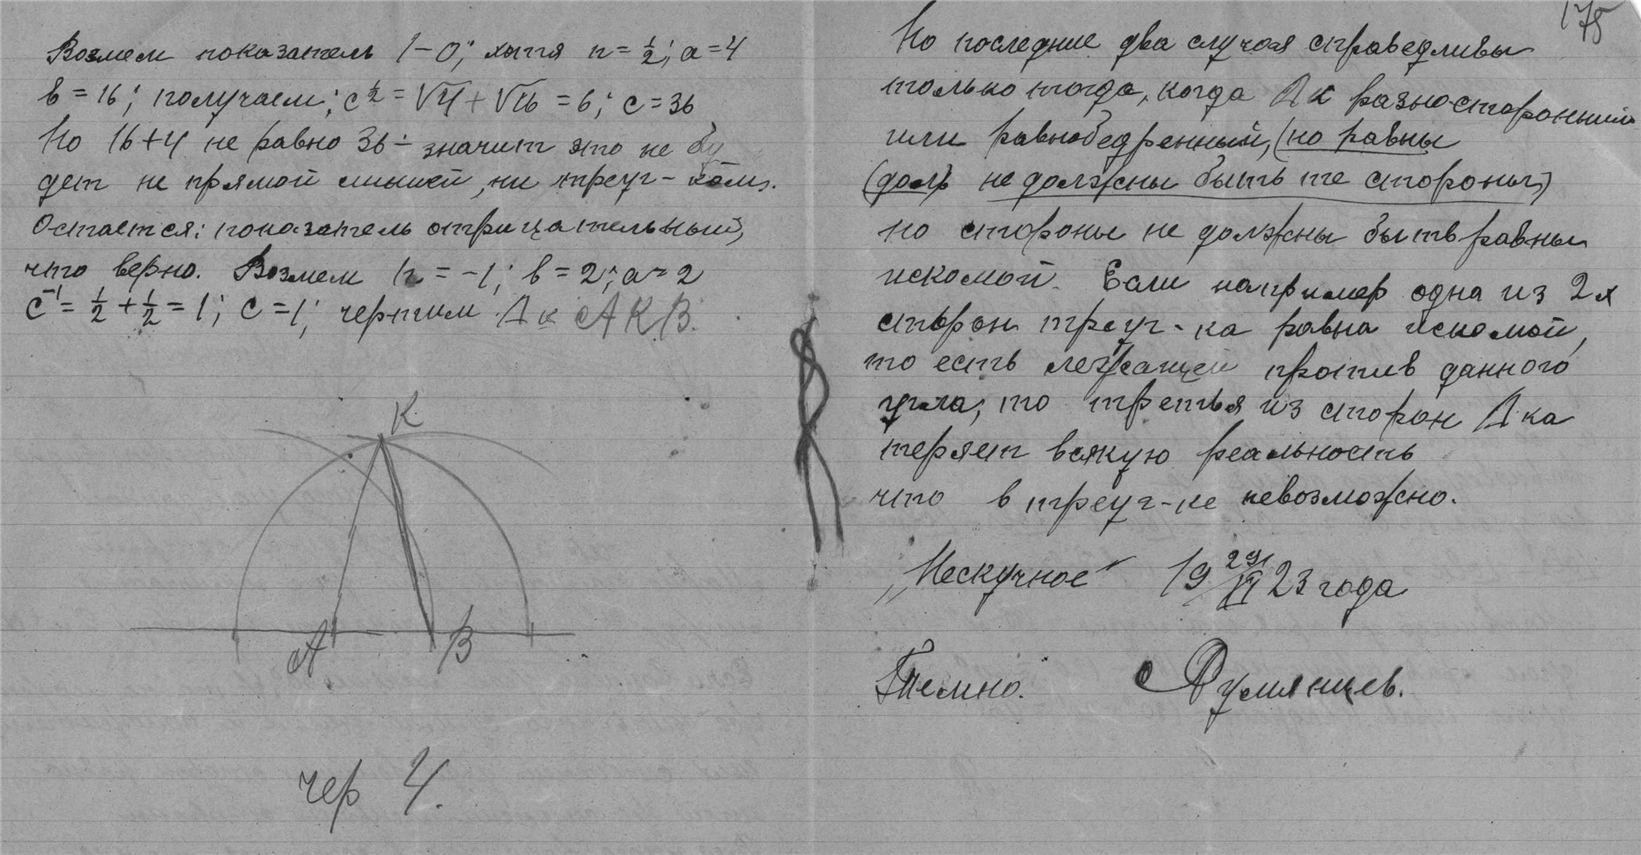 Возмем показатель 1–0; хотя n = ½; a = 4
b = 16; получаем; c^½ = √4 + √16 = 6; c = 36
Но 16+4 не равно 36 – значит это не бу
дет не прямой линией, ни треуг–ком.
Остается: показатель отрицательный,
что верно. Возмем n = -1; b = 2; a = 2
c^-1 = ½ + ½ = 1; c = 1; чертим Δк АКВ.
К
А
В
чер 4.
175
Но последние два случая справедливы
только тогда, когда Δк разносторонний
или равнобедренный, (но равны
не должны быть те стороны)
но стороны не должны быть равны
искомой. Если например одна из 2х
сторон треуг-ка равна искомой,
то есть лежащей против данного
угла, то третья из сторон Δка
теряет всякую реальность
что в треуг-ке невозможно.
„Нескучное" 19 29/VI 23 года
Темно. Румянцев.